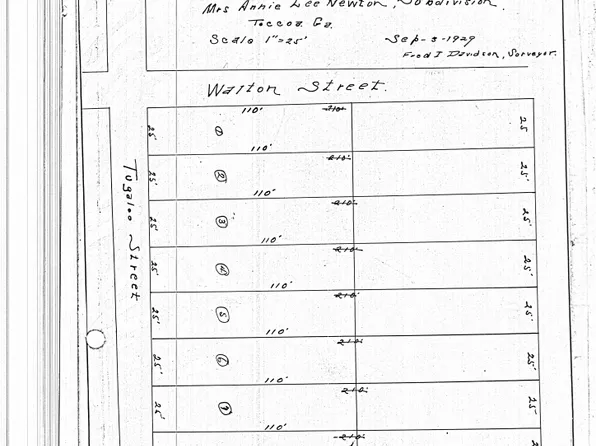 Mrs Annie Lee Newton, Subdivision.
Toccoa Ga.
Scale 1"=25' Sep-3-1929
Fred I Davidson, Surveyor.
Walton Street.
Tugaloo Street
110' 210'
25' 1 25
110' 210'
25' 2 25'
110' 210'
25' 3 25'
110' 210'
25' 4 25'
110' 210'
25' 5 25'
110' 210'
25' 6 25'
110' 210'
25' 7 25'
110' 210'
2